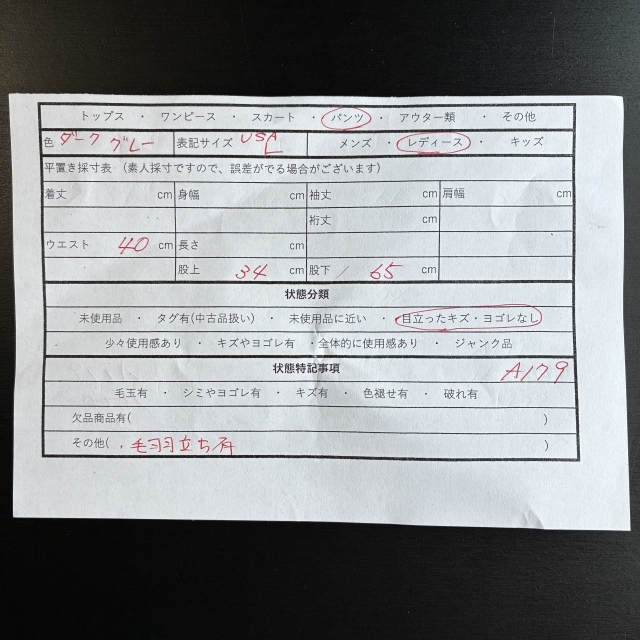 トップス ・ ワンピース ・ スカート ・ パンツ ・ アウター類 ・ その他
色 ダーク グレー 表記サイズ USA L メンズ ・ レディース ・ キッズ
平置き採寸表 (素人採寸ですので、誤差がでる場合がございます)
着丈 cm 身幅 cm 袖丈 cm 肩幅 cm
裄丈 cm
ウエスト 40 cm 長さ cm
股上 34 cm 股下 65 cm
状態分類
未使用品 ・ タグ有(中古品扱い) ・ 未使用品に近い ・ 目立ったキズ・ヨゴレなし
少々使用感あり ・ キズやヨゴレ有 ・全体的に使用感あり ・ ジャンク品
状態特記事項 A179
毛玉有 ・ シミやヨゴレ有 ・ キズ有 ・ 色褪せ有 ・ 破れ有
欠品商品有( )
その他( ・毛羽立ち有 )